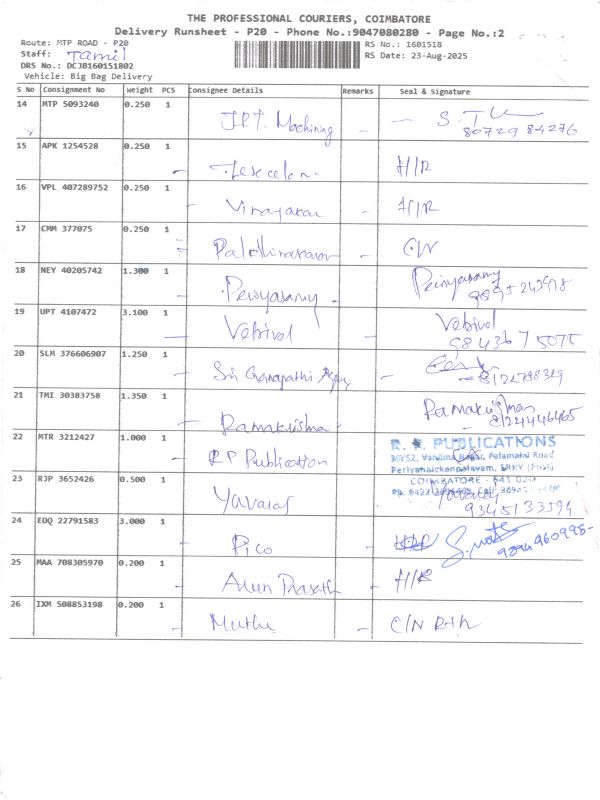 THE PROFESSIONAL COURIERS, COIMBATORE
Delivery Runsheet - P20 - Phone No.:9047080280 - Page No.:2
Route: MTP ROAD - P20 RS No.: 1601518
Staff: Tamil RS Date: 23-Aug-2025
DRS No.: DCJB160151802
Vehicle: Big Bag Delivery
S No Consignment No Weight PCS Consignee Details Remarks Seal & Signature
14 MTP 5093240 0.250 1 Machining
80729 84276
15 APK 1254528 0.250 1 H/R
16 VPL 407289752 0.250 1 Vinayakan H/R
17 CMM 377075 0.250 1
18 NEY 40205742 1.300 1 Periyasamy Periyasamy
19 UPT 4107472 3.100 1 Vetrivel Vetrivel
98436 75075
20 SLM 376606907 1.250 1 Sri Ganapathi Agency
21 TMI 30383758 1.350 1 Ramakrishna Ramakrishnan
22 MTR 3212427 1.000 1 R P Publication R. P. PUBLICATIONS
COIMBATORE
23 RJP 3652426 0.500 1 Yuvaraj Yuvaraj
93451 33594
24 EDQ 22791583 3.000 1 Pico
25 MAA 708305970 0.200 1 Arun Prasath H/R
26 IXM 508853198 0.200 1 Muthu C/N